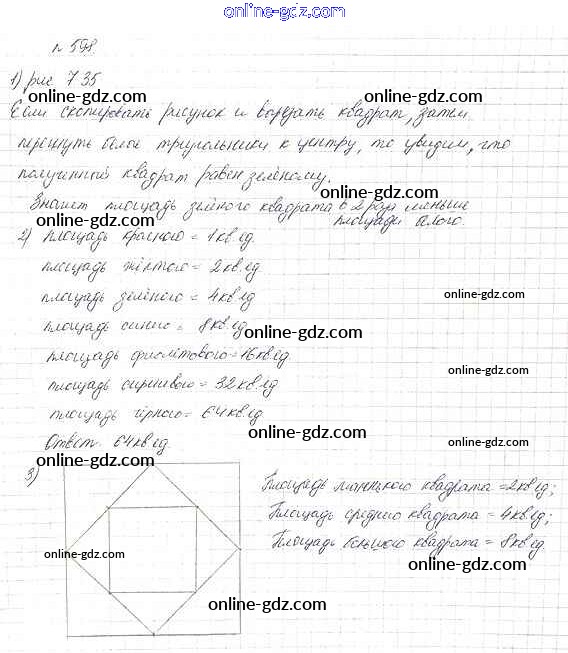 www.online-gdz.com
№ 598
1) рис 7 35
online-gdz.com online-gdz.com
Если скопировать рисунок и вырезать квадрат, затем
перегнуть белые треугольники к центру, то увидим, что
полученный квадрат равен зелёному.
online-gdz.com
Значит площадь зелёного квадрата в 2 раза меньше
площади белого.
online-gdz.com
2) Площадь красного = 1 кв.ед.
площадь жёлтого = 2 кв.ед.
площадь зелёного = 4 кв.ед
online-gdz.com
площадь синего = 8 кв.ед.
online-gdz.com
площадь фиолетового = 16 кв.ед
online-gdz.com
площадь сиреневого = 32 кв.ед
площадь чёрного = 64 кв.ед.
online-gdz.com
Ответ: 64 кв.ед.
online-gdz.com
online-gdz.com
3)
Площадь маленького квадрата = 2 кв.ед;
Площадь среднего квадрата = 4 кв.ед;
Площадь большого квадрата = 8 кв.ед.
online-gdz.com
online-gdz.com
online-gdz.com
online-gdz.com